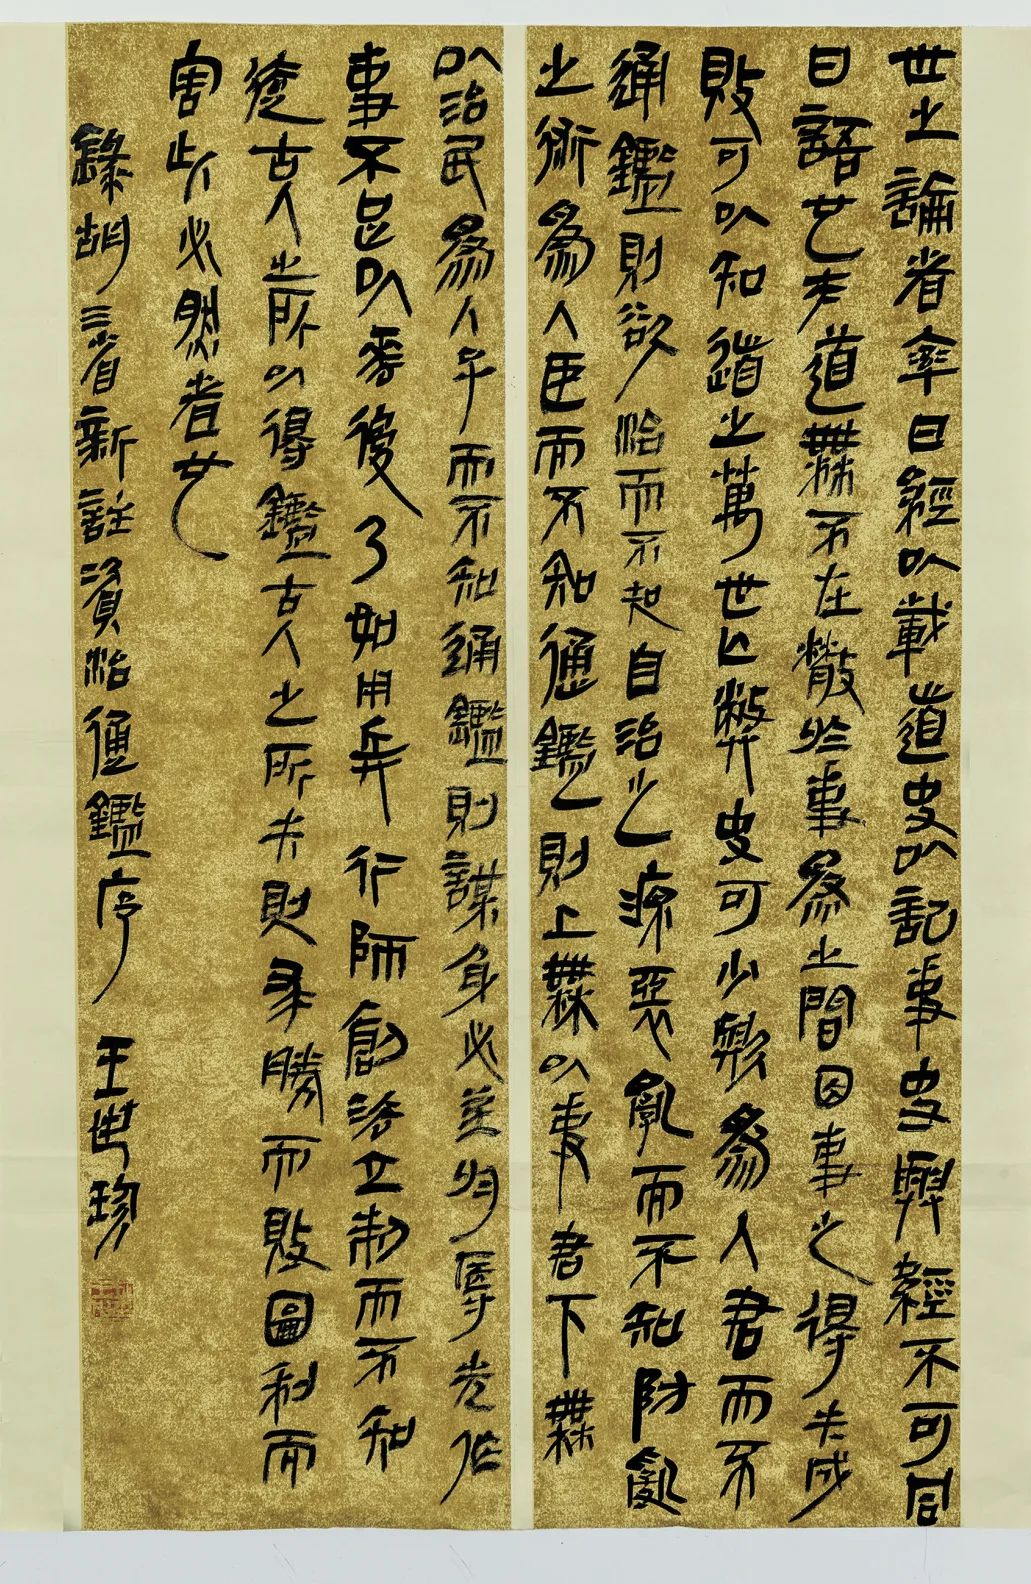 世之論者率曰經以載道史以記事史與經不可同
日語也夫道無不在散於事為之間因事之得失成
敗可以知道之萬世亡弊史可少歟為人君而不
通鑑則欲治而不知自治之源惡亂而不知防亂
之術為人臣而不知通鑑則上無以事君下無
以治民為人子而不知通鑑則謀身必至於辱先作
事不足以垂後乃如用兵行師創法立制而不知
迹古人之所以得鑑古人之所失則求勝而敗圖利而
害此必然者也
錄胡三省新註資治通鑑序 王世珍